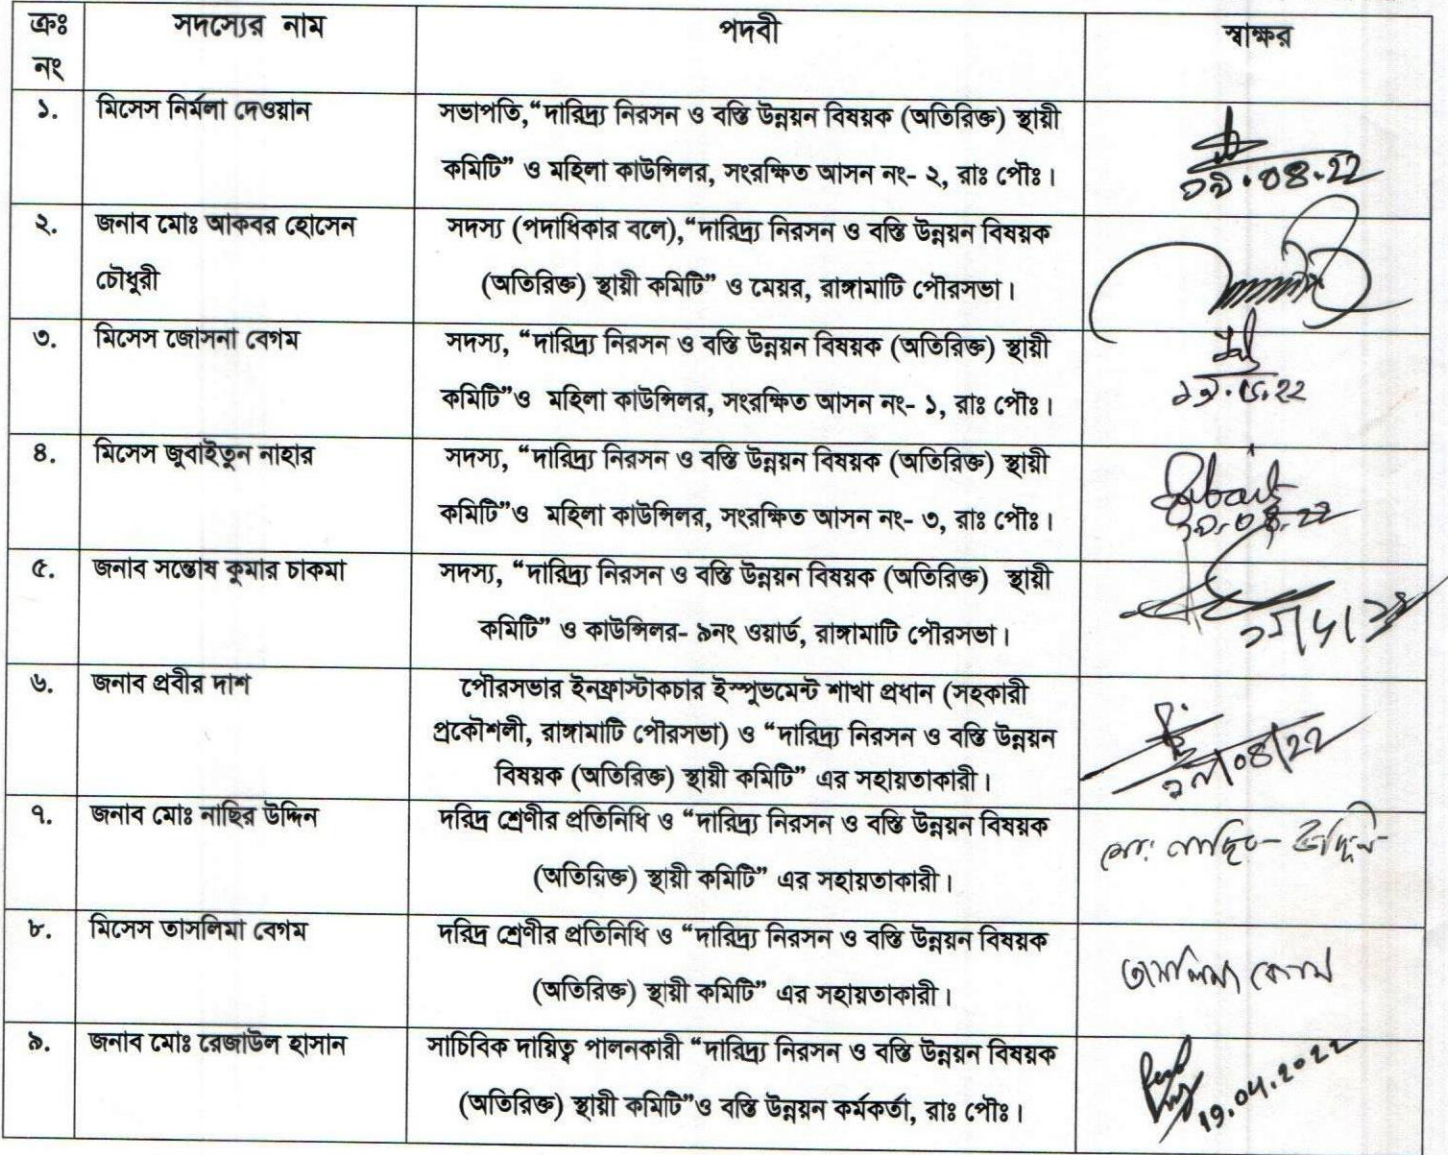 ক্রঃ নং সদস্যের নাম পদবী স্বাক্ষর
১. মিসেস নির্মলা দেওয়ান সভাপতি,“দারিদ্র্য নিরসন ও বস্তি উন্নয়ন বিষয়ক (অতিরিক্ত) স্থায়ী
কমিটি” ও মহিলা কাউন্সিলর, সংরক্ষিত আসন নং- ২, রাঃ পৌঃ।
২. জনাব মোঃ আকবর হোসেন চৌধুরী সদস্য (পদাধিকার বলে),“দারিদ্র্য নিরসন ও বস্তি উন্নয়ন বিষয়ক
(অতিরিক্ত) স্থায়ী কমিটি” ও মেয়র, রাঙ্গামাটি পৌরসভা।
৩. মিসেস জোসনা বেগম সদস্য, “দারিদ্র্য নিরসন ও বস্তি উন্নয়ন বিষয়ক (অতিরিক্ত) স্থায়ী
কমিটি”ও মহিলা কাউন্সিলর, সংরক্ষিত আসন নং- ১, রাঃ পৌঃ।
৪. মিসেস জুবাইতুন নাহার সদস্য, “দারিদ্র্য নিরসন ও বস্তি উন্নয়ন বিষয়ক (অতিরিক্ত) স্থায়ী
কমিটি”ও মহিলা কাউন্সিলর, সংরক্ষিত আসন নং- ৩, রাঃ পৌঃ।
৫. জনাব সন্তোষ কুমার চাকমা সদস্য, “দারিদ্র্য নিরসন ও বস্তি উন্নয়ন বিষয়ক (অতিরিক্ত) স্থায়ী
কমিটি” ও কাউন্সিলর- ৯নং ওয়ার্ড, রাঙ্গামাটি পৌরসভা।
৬. জনাব প্রবীর দাশ পৌরসভার ইনফ্রাস্টাকচার ইম্প্রুভমেন্ট শাখা প্রধান (সহকারী
প্রকৌশলী, রাঙ্গামাটি পৌরসভা) ও “দারিদ্র্য নিরসন ও বস্তি উন্নয়ন
বিষয়ক (অতিরিক্ত) স্থায়ী কমিটি” এর সহায়তাকারী।
৭. জনাব মোঃ নাছির উদ্দিন দরিদ্র শ্রেণীর প্রতিনিধি ও “দারিদ্র্য নিরসন ও বস্তি উন্নয়ন বিষয়ক
(অতিরিক্ত) স্থায়ী কমিটি” এর সহায়তাকারী।
৮. মিসেস তাসলিমা বেগম দরিদ্র শ্রেণীর প্রতিনিধি ও “দারিদ্র্য নিরসন ও বস্তি উন্নয়ন বিষয়ক
(অতিরিক্ত) স্থায়ী কমিটি” এর সহায়তাকারী।
তাসলিমা বেগম
৯. জনাব মোঃ রেজাউল হাসান সাচিবিক দায়িত্ব পালনকারী “দারিদ্র্য নিরসন ও বস্তি উন্নয়ন বিষয়ক
(অতিরিক্ত) স্থায়ী কমিটি”ও বস্তি উন্নয়ন কর্মকর্তা, রাঃ পৌঃ।
19.04.2022